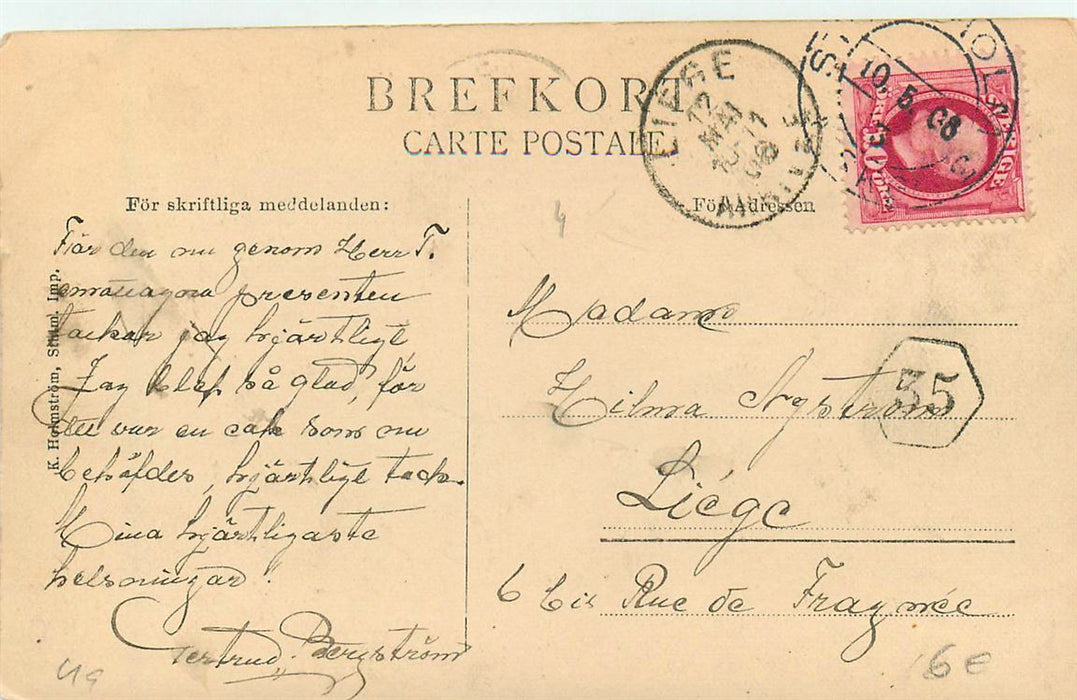 BREFKORT
CARTE POSTALE.
LIEGE
12
MAI
10-11
08
SVERIGE
10 ÖRE
10.5.08
För skriftliga meddelanden:
För Adressen
För den nu genom Herr T.
presenten
tackar jag hjärtligt
Jag blef så glad, för
det var en sak som nu
behöfdes, hjärtligt tack.
Mina hjärtligaste
helsningar!
Gertrud Bergström
Madame
Hilma Nyström
Liége
6 bis Rue de Fragnée
35
K. Holmström, Sthlm. Imp.
4
6€